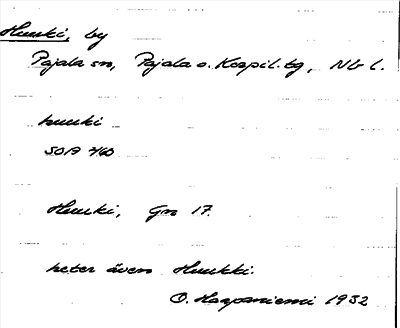 Huuki, by
Pajala sn, Pajala o. Korpil. tg, Nb l.
huuki
SOA 2/60
Huuki, Gn 17.
heter även Huukki.
O. Haapaniemi 1932